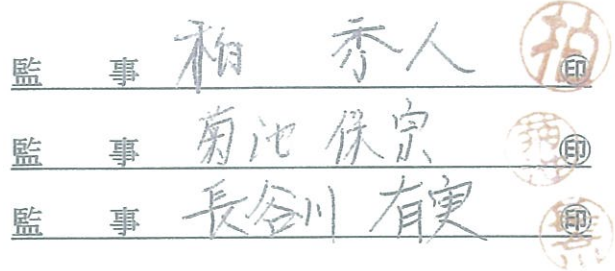 監 事 柏 秀人 ㊞
監 事 菊池 保宗 ㊞
監 事 長谷川 有実 ㊞